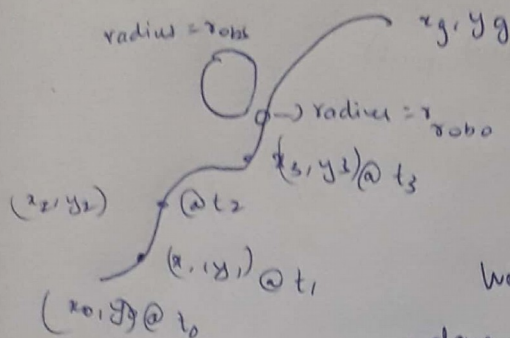 radius = robs
xg, yg
→ radius = r robo
(x3, y3) @ t3
(x2, y2) @t2
(x1, y1) @ t1
(x0, y0) @ t0